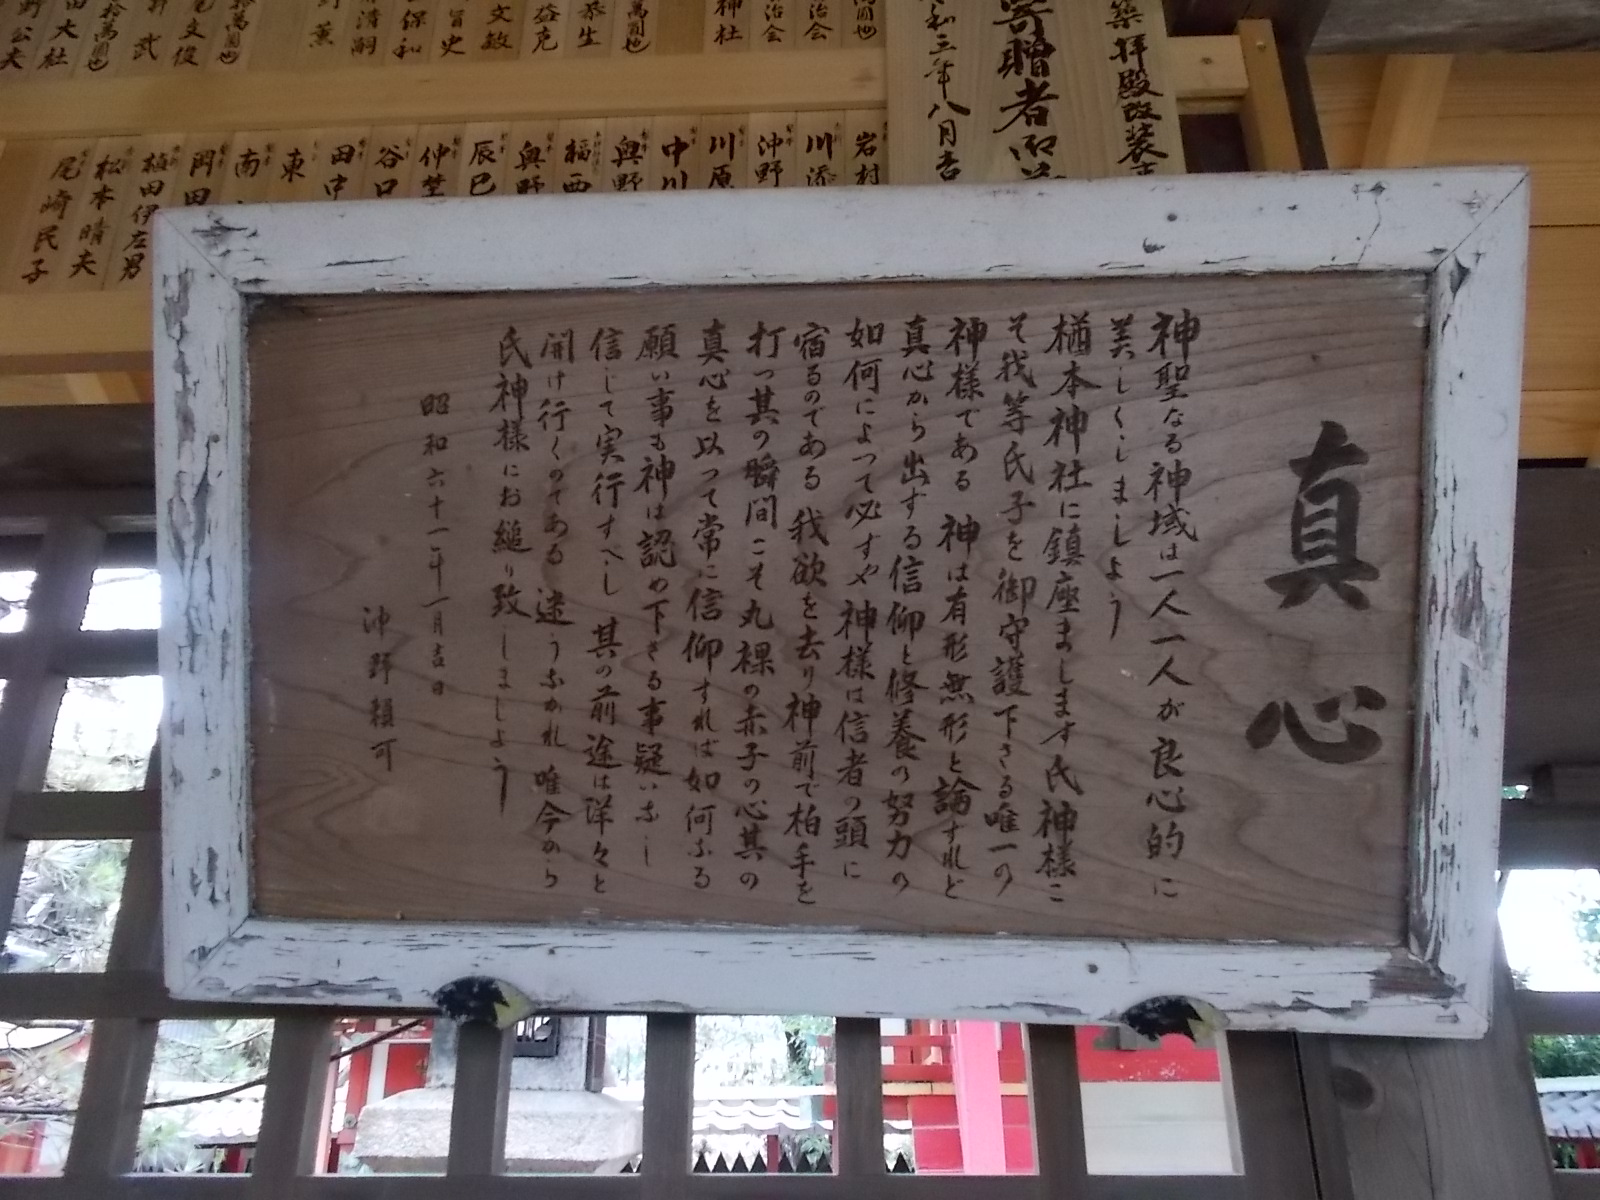 真心
神聖なる神域は一人一人が良心的に
美しくしましよう
楢本神社に鎮座まします氏神様こ
そ我等氏子を御守護下さる唯一の
神様である 神は有形無形と論すれど
真心から出する信仰と修養の努力の
如何によって必すや神様は信者の頭に
宿るのである 我欲を去り神前で柏手を
打つ其の瞬間こそ丸裸の赤子の心其の
真心を以って常に信仰すれば如何なる
願い事も神は認め下さる事疑いなし
信じて実行すへし 其の前途は洋々と
開け行くのである 迷うなかれ 唯今から
氏神様にお縋り致しましよう
昭和六十一年一月吉日
沖野頼可
築拝殿改装
寄贈者
令和三年八月吉
萬圓也
治会
治会
神社
萬圓也
恭生
益克
文敏
史
保和
清嗣
薫
拾萬圓也
文俊
武
拾萬圓也
大社
公夫
岩村
川添
沖野
川原
中川
奥野
福西
奥野
辰巳
仲埜
谷口
田中
東
南
岡田
植田伊左男
松本晴夫
尾崎民子